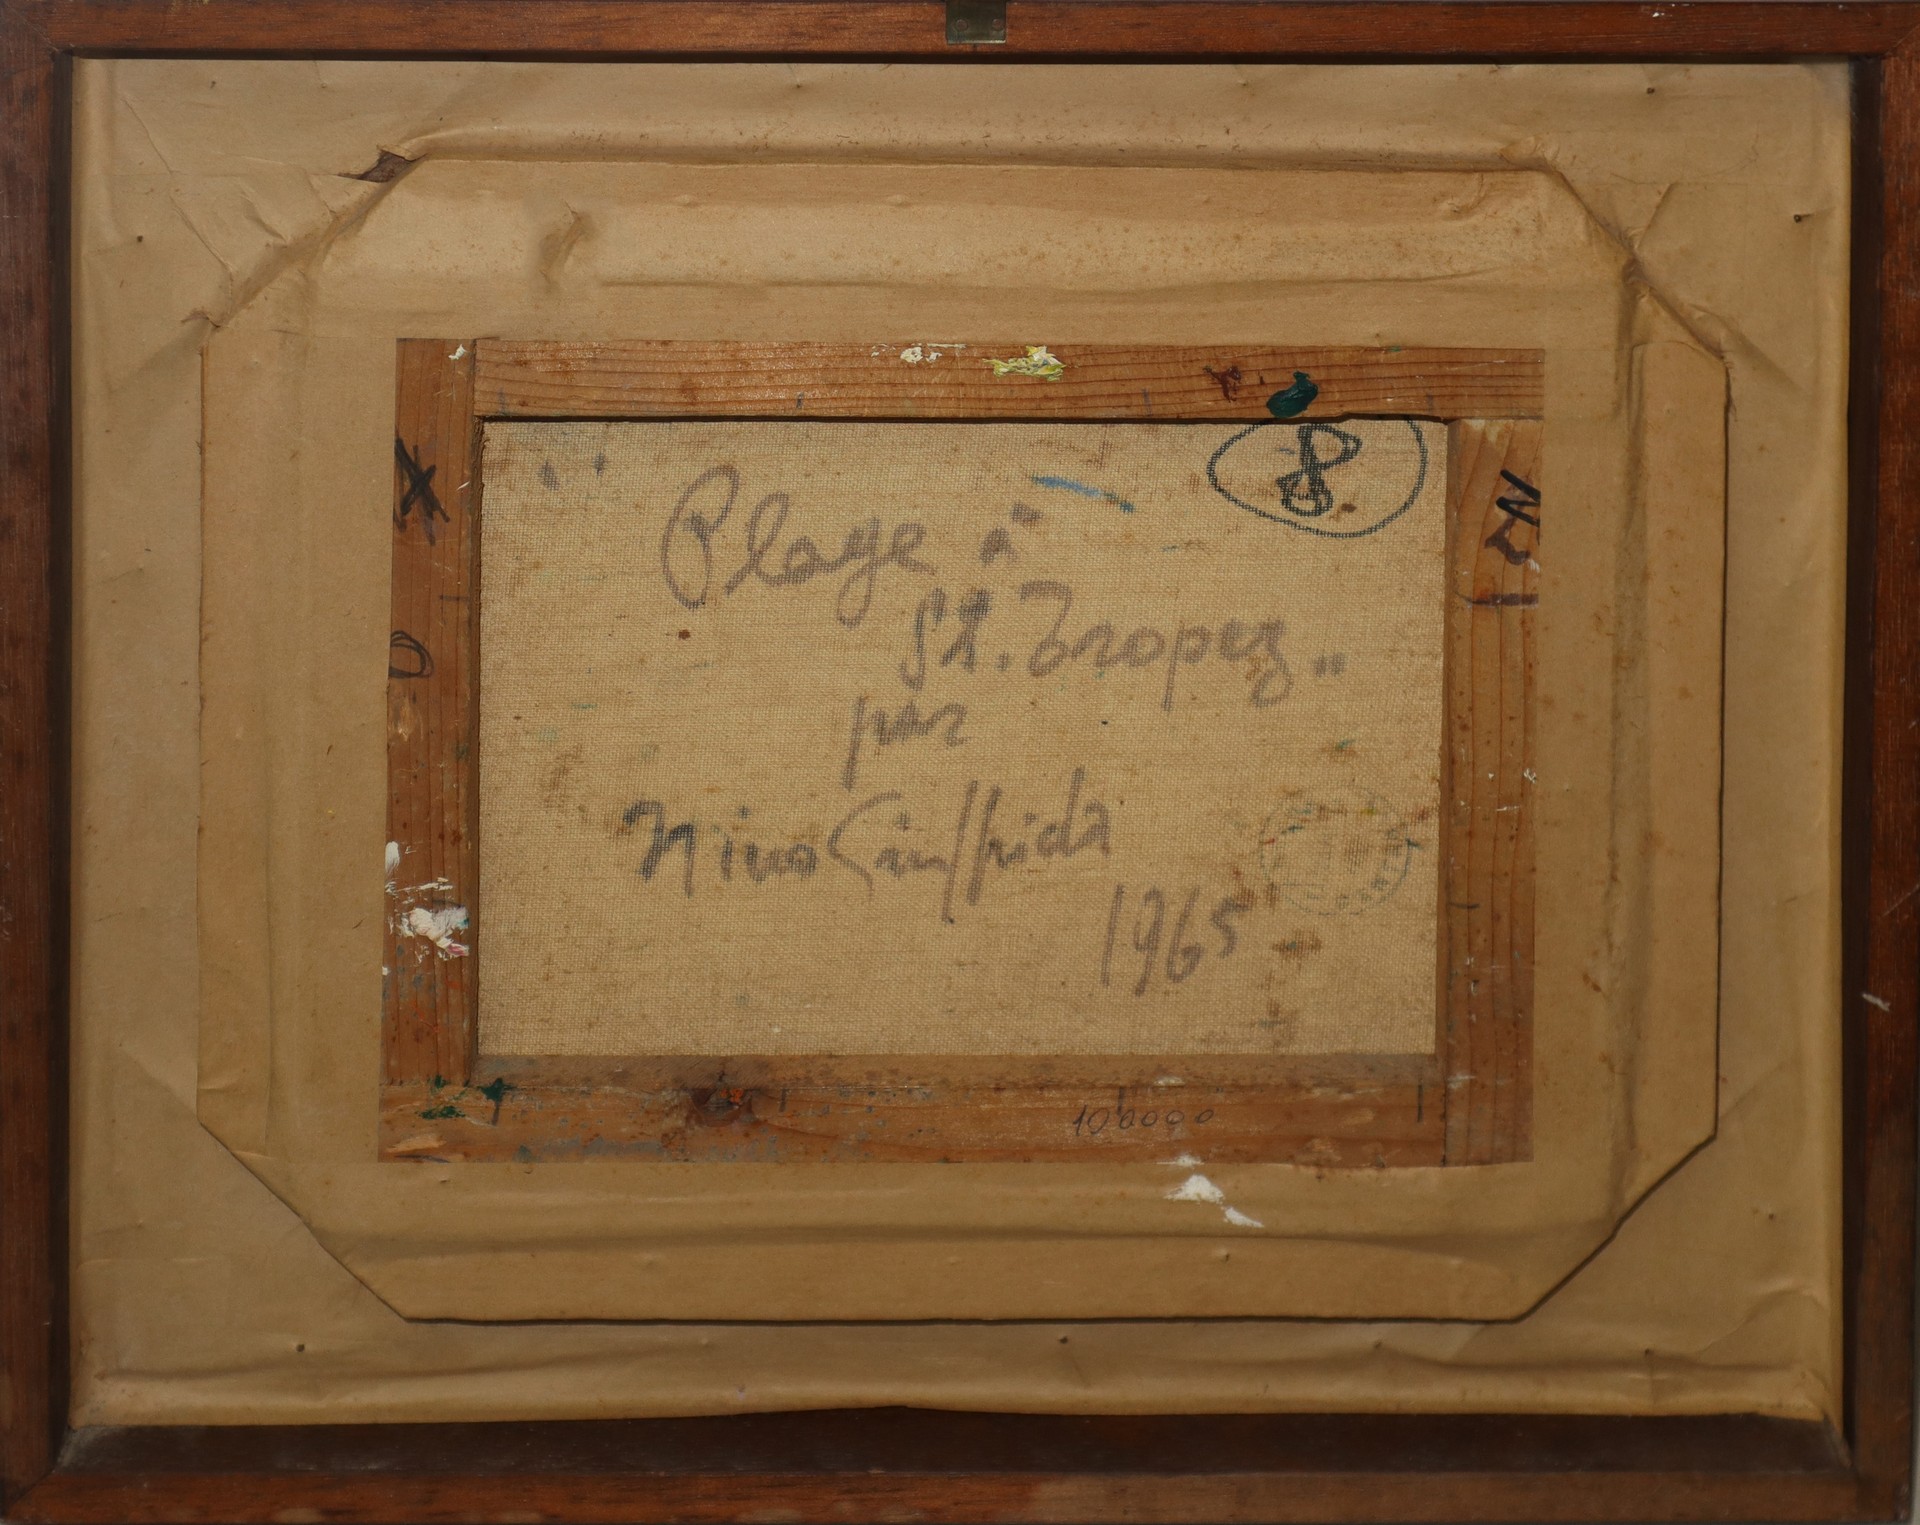 8
" Plage à
St. Tropez "
par
Nino Giuffrida
1965
100000